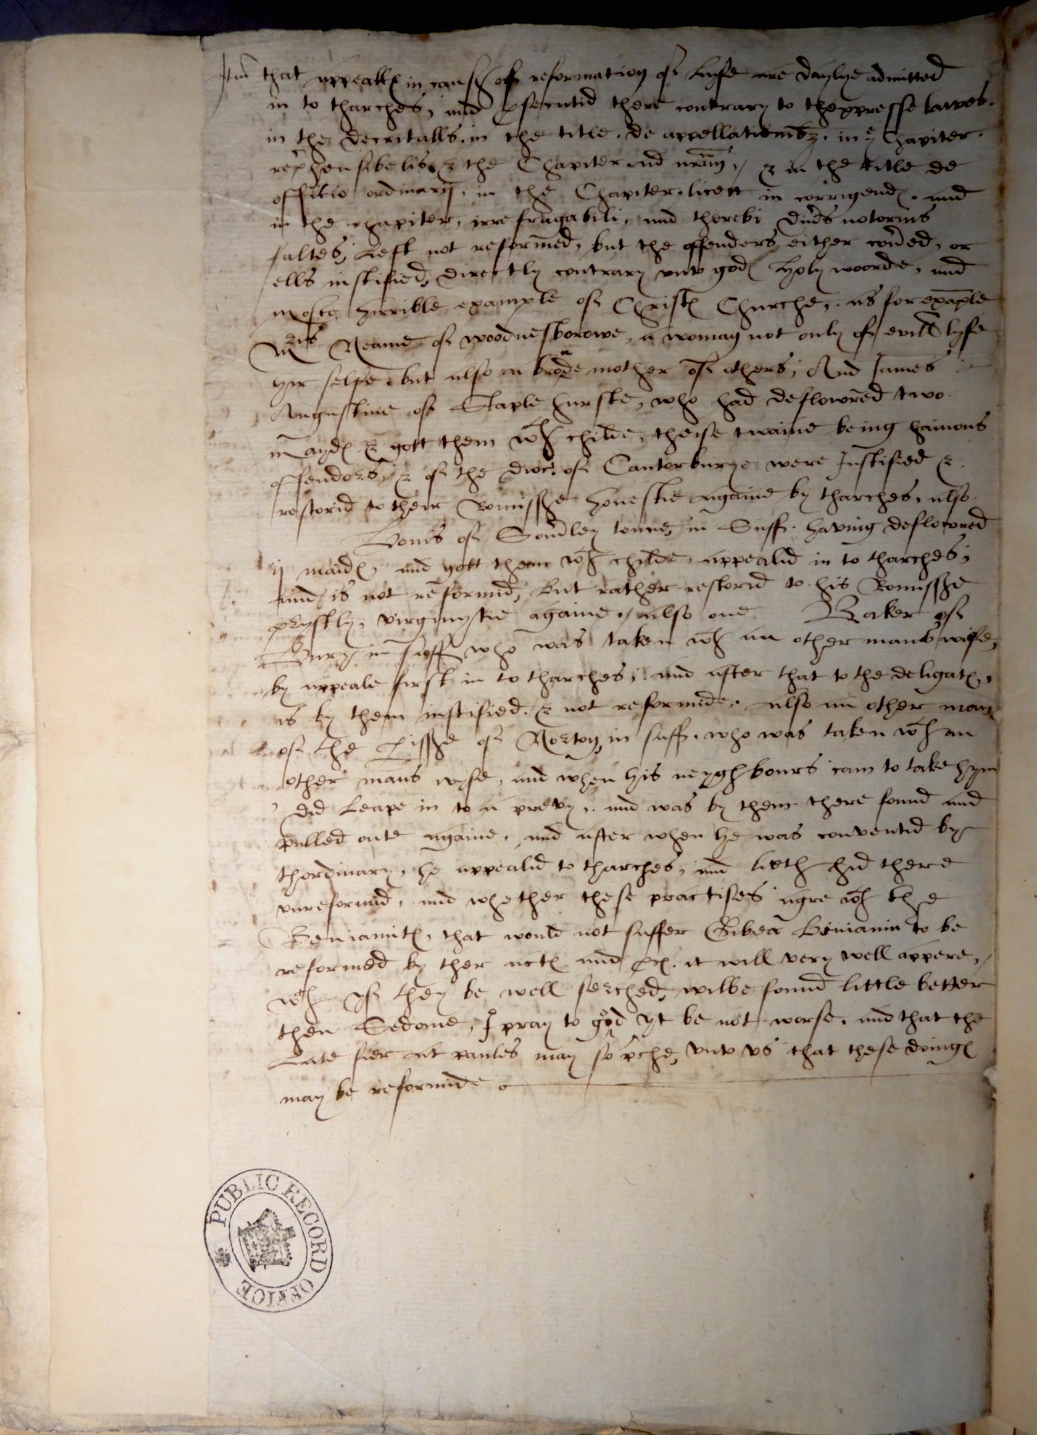 Itm that appealℓ in causℓ off reformation off Lyfe are daylye admitted
in to tharches, and psecutid there contrary to thexpresse lawes.
in the decritalls. in the title. de appellationibȝ. in ye Chapiter.
rephensibelis, & the Chapiter ad nram, / & in the title de
officio ordinarij. in the Chapiter. licett in corrigendℓ. and
in the chapiter. irrefragabili, and therebi notorius
faltes, Left not reformed, but the offenders either, or
ells iustified, directly contrary unto godℓ Holy woorde, and
moste horrible example off Christℓ Churche, as for exaple
Neame off woodnesborowe, a woman not only off evill lyfe
hir selfe but also a mother off others; And James
Augustine off Staplehurste, who had deflowred two
maydℓ & gott them wth childe, theise twaine being hainous
offendors, & off the dioc: off Canterburye were Justified &
restorid to their Romisshe honestie againe by tharches, also
off Soudley towne in Suff. having deflowred
ij maidℓ, and gott them wth childe, appealid in to tharches;
and is not reformid, but rather restorid to his Romisshe
prystly virginytie againe, / also one Baker off
Bury in suff who was taken wth an other mans wife,
by appeale first in to tharches, and after that to the deligatℓ,
is by them iustified. & not reformide. also an other man
off the pisshe off Norton in suff. who was taken wth an
other mans wyfe, and when his neyghbours cam to take hym
did Leape in to a prevy, and was by them there found and
pulled oute againe, and after when he was conventid by
thordinary, he appealid to tharches, and lieth hid there
unreformid, and whether these practises agre wth the
Beniamitℓ, that would not suffer Gibea Beniamin to be
reformed by ther actℓ and it will very well appere, /
wch yff they be well serched, wilbe found little better
then Sodome, I pray to god yt be not worse. and that the
Late fier at paules may so pche, unto us that these doingℓ
may be reformide
PUBLIC RECORD OFFICE